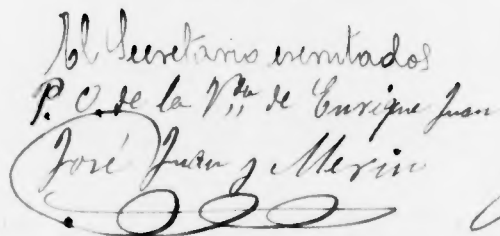 El Secretario
P. O. de la Vda de Enrique Juan
José Juan y Merin